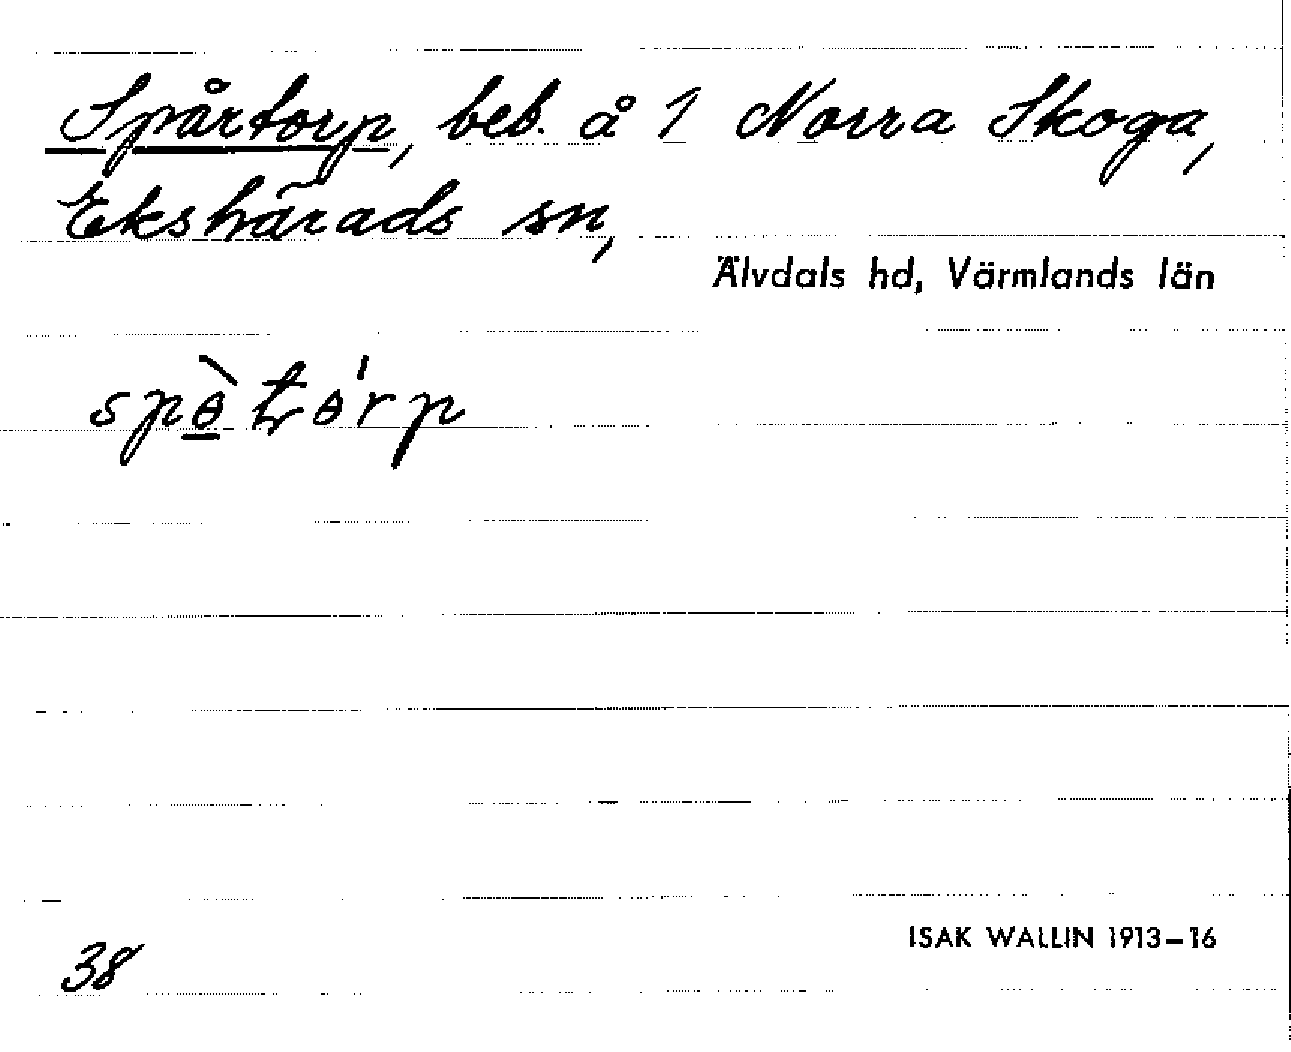 Spårtorp, beb. å 1 Norra Skoga,
Ekshärads sn,
Älvdals hd, Värmlands län
spɵ̀tɵ́rp
ISAK WALLIN 1913–16
38